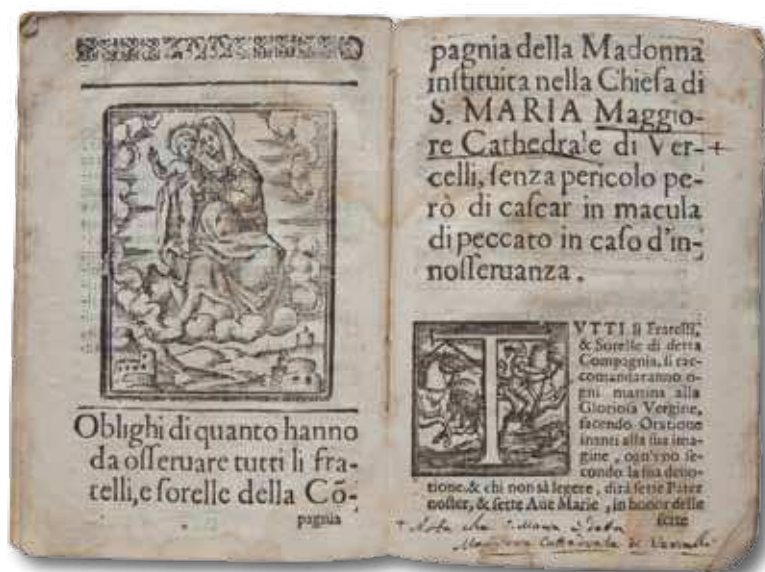 Oblighi di quanto hanno
da osseruare tutti li fra-
telli, e sorelle della Cõ-
pagnia
pagnia della Madonna
instituita nella Chiesa di
S. MARIA Maggio-
re Cathedrale di Ver-+
celli, senza pericolo pe-
rò di cascar in macula
di peccato in caso d'in-
nosseruanza.
TVTTI li Fratelli,
& Sorelle di detta
Compagnia, si rac-
comandaranno o-
gni mattina alla
Gloriosa Vergine,
facendo Oratione
inanti alla sua ima-
gine, ogn'vno se-
condo la sua deuo-
tione, & chi non sà legere, dirà sette Pater
noster, & sette Aue Marie, in honor delle
sette
+ Nota che S. Maria
Maggiore Cattedrale di Vercelli